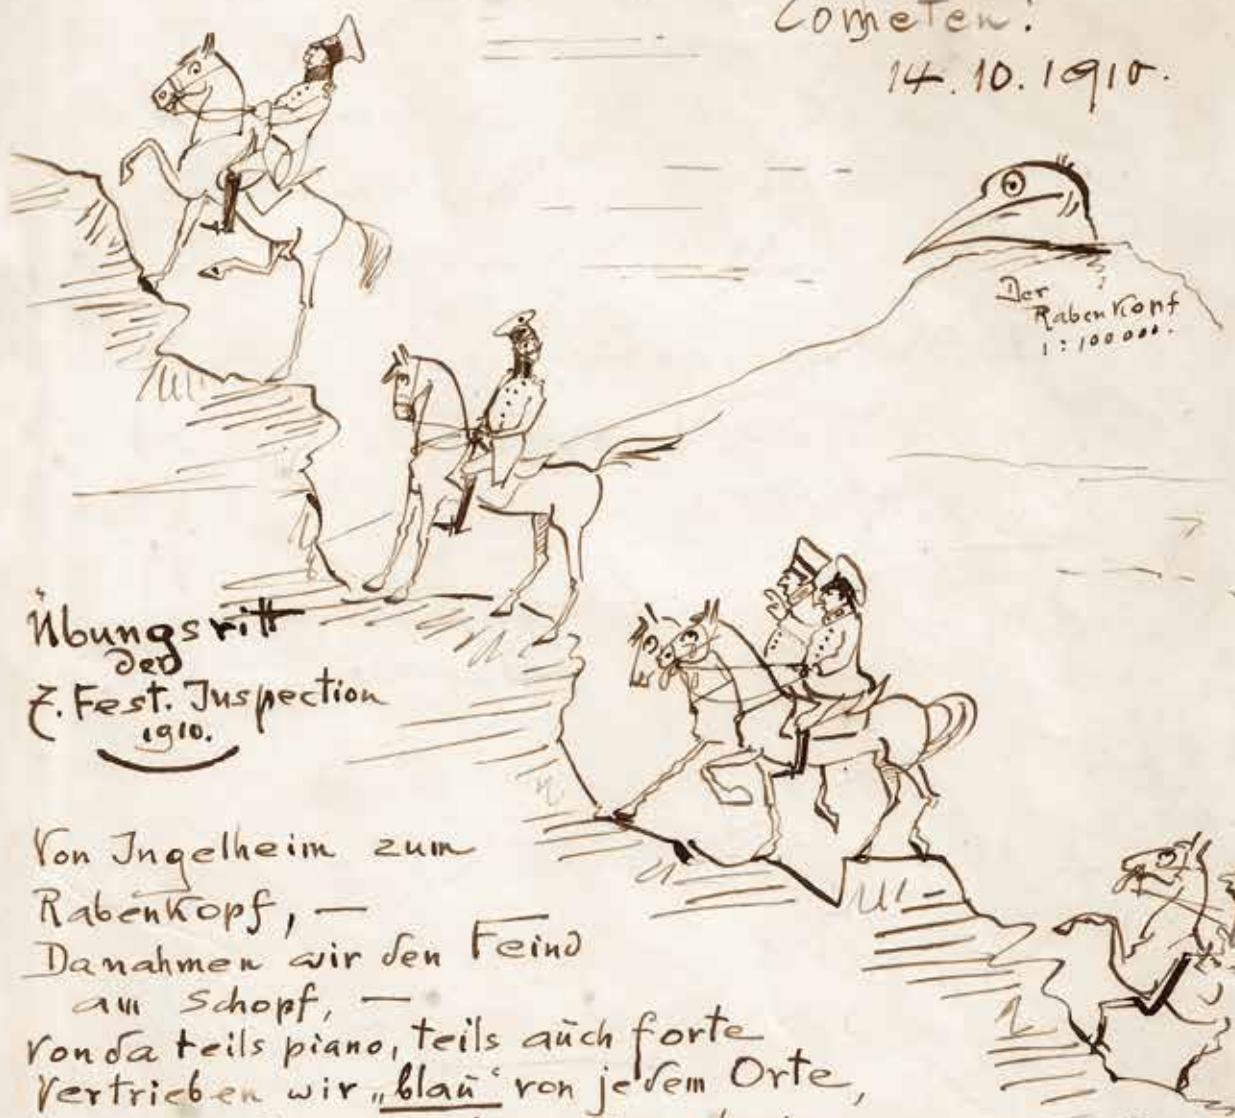 Cometen!
14.10.1910.
Der
Rabenkopf
1:100000.
Übungsritt
der
7. Fest. Inspection
1910.
Von Ingelheim zum
Rabenkopf, —
Da nahmen wir den Feind
am Schopf, —
von da teils piano, teils auch forte
vertrieben wir „blau“ von jedem Orte,